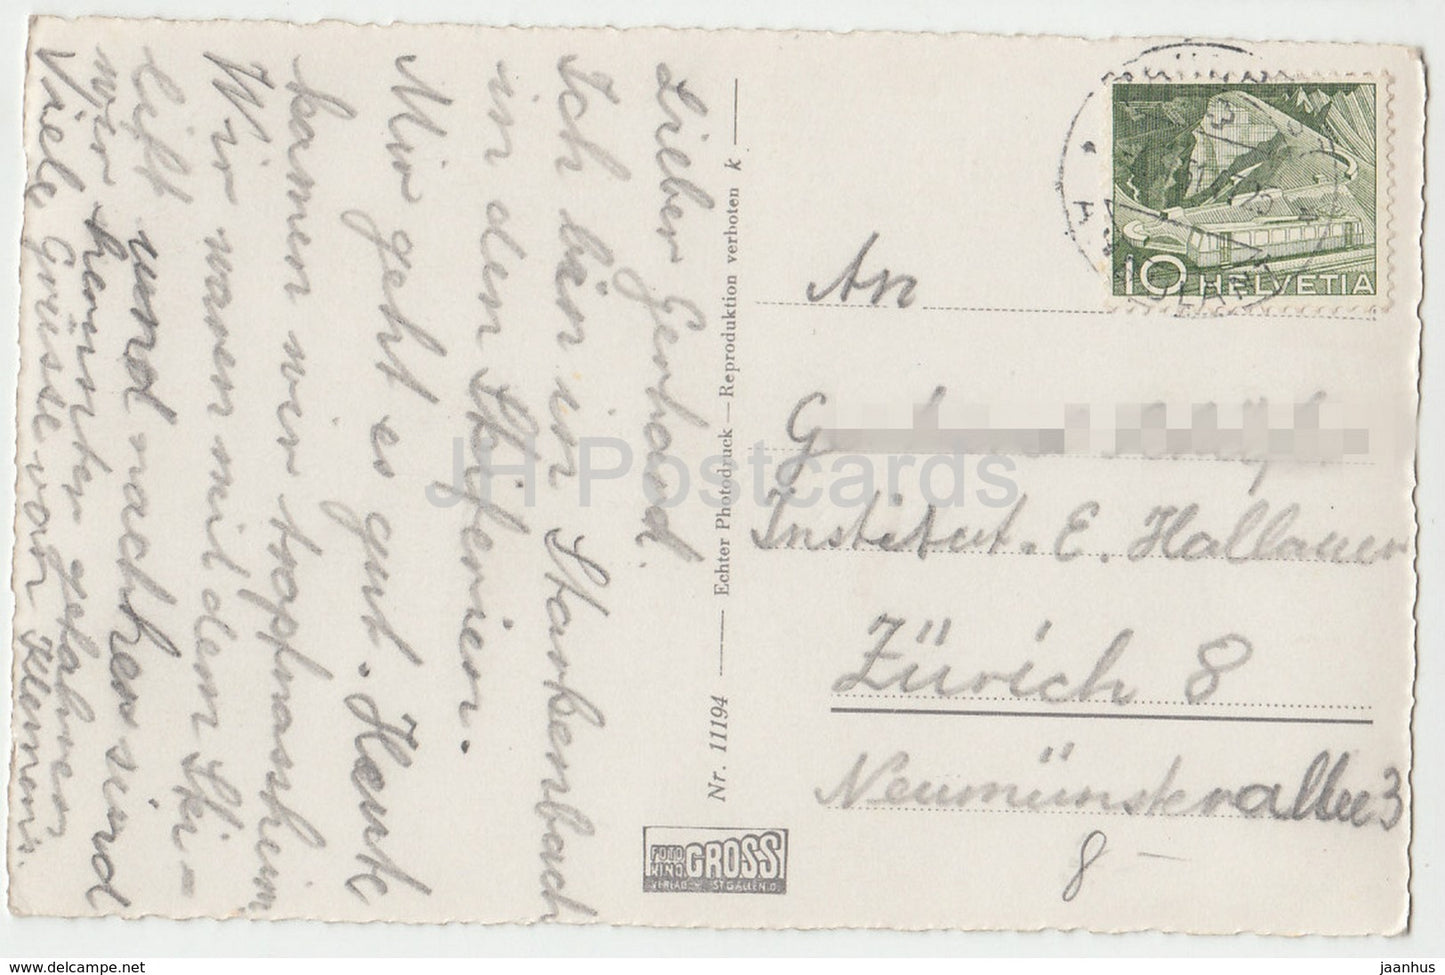 Lieber Gerhard.
Ich bin in Starkenbach
in den Skiferien.
Mir geht es gut. Heute
kamen wir
Wir waren mit dem Ski-
lift und nachher sind
wir herunter gefahren
Viele Grüsse von Klemens.
Nr. 11194 — Echter Photodruck — Reproduktion verboten k
FOTO KINO GROSS
VERLAG ST. GALLEN O.
10 HELVETIA
An
G
Institut. E. Hallauer
Zürich 8
Neumünsterallee 3
8 —
JH Postcards
jaanhus — delcampe.net